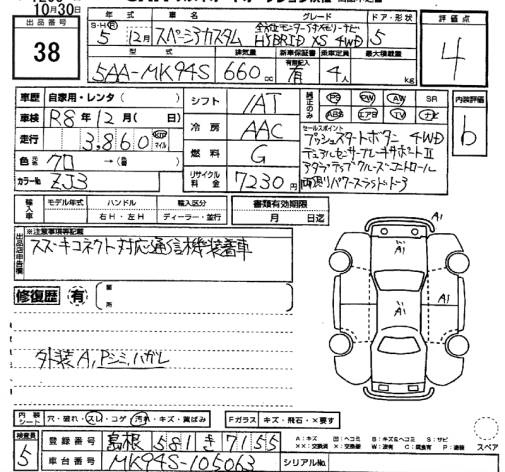 10月30日
出品番号 年 車名 グレード ドア・形状 評価点
38
S・H・R 5年 12月 スペーシアカスタム 全方位モニター付メモリーナビ HYBRID XS 4WD 5
4
型式 排気量 新車保証書 乗車定員 最大積載量
5AA-MK94S 660cc 有 4人 kg
車歴 自家用・レンタ( )
車検 R8年12月( 日)
走行 3,860 km マイル
色 元色 クロ →( 番)
カラーNo ZJ3
シフト IAT
冷房 AAC
燃料 G
リサイクル料金 7230円
純正のみ PS PW AW SR
ABS エアB TV ナビ
内装評価
b
セールスポイント
プッシュスタートボタン 4WD
デュアルセンサーブレーキサポートⅡ
アダプティブクルーズコントロール
両側パワースライドドア
輸入車 モデル年式 ハンドル 輸入区分 書類有効期限
年 右H・左H ディーラー・並行 月 日迄
出品店申告欄
※注意事項等記載
スズキコネクト対応通信機装着車
修復歴 有 箇所
外装A,Pシミ,ハガレ
A1
A1
A1
A1
内装シート 穴・破れ・スレ・コゲ・汚れ・キズ・黄ばみ Fガラス キズ・飛石・×要す
検査員 5
登録番号 島根 581 き 7155
車台番号 MK94S-105063 シリアルNo.
A:キズ 凹:ヘコミ B:キズ&ヘコミ S:サビ
××:交換済 ×:交換要 W:波有 C:腐食有 P:塗装 スペア